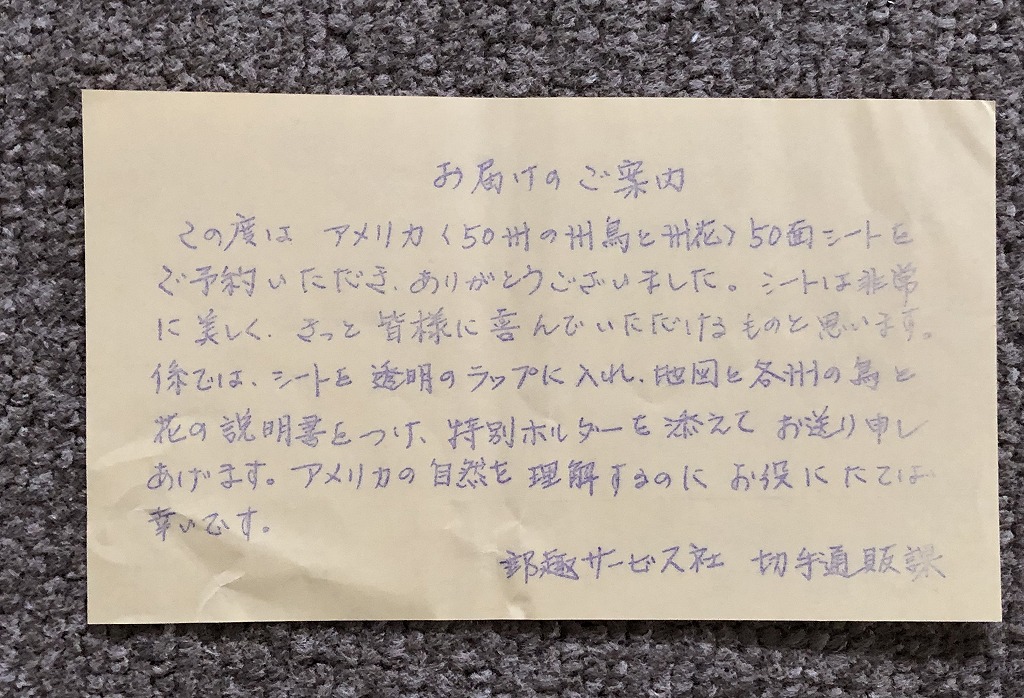 お届けのご案内
この度は アメリカ〈50州の州鳥と州花〉50面シートを
ご予約いただき、ありがとうございました。シートは非常
に美しく、きっと皆様に喜んでいただけるものと思います。
係では、シートを透明のラップに入れ、地図と各州の鳥と
花の説明書をつけ、特別ホルダーを添えてお送り申し
あげます。アメリカの自然を理解するのにお役にたてば
幸いです。
郵趣サービス社 切手通販課